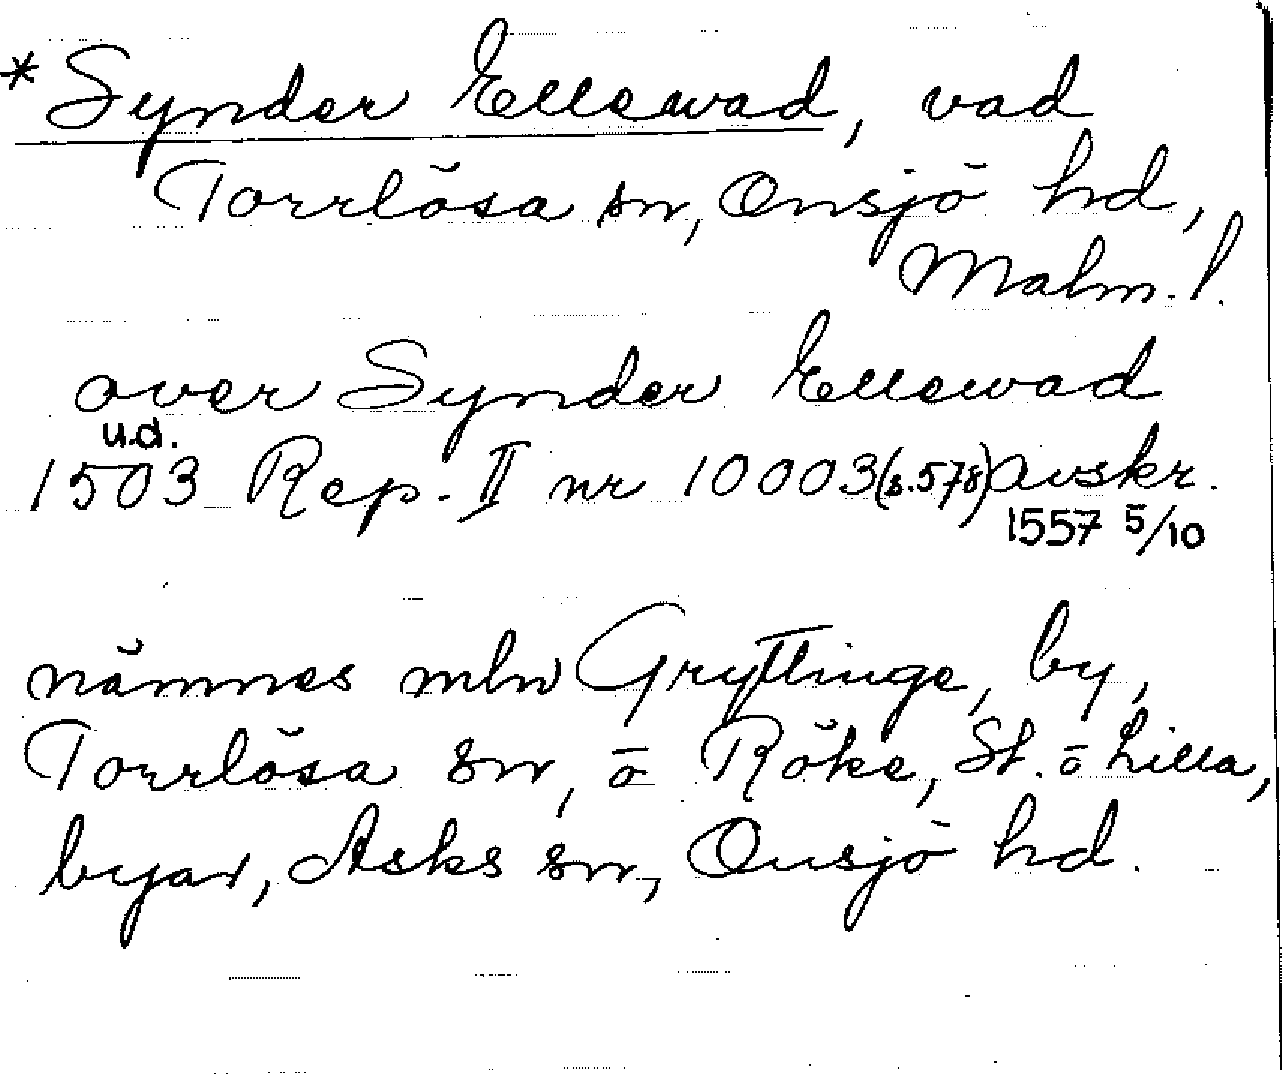 *Synder Ellewad, vad
Torrlösa sn, Onsjö hd,
Malm. l.
over Synder Ellewad
u.d.
1503 Rep. II nr 10003 (s. 578) avskr.
1557 5/10
nämnes mln Gryttinge, by,
Torrlösa sn, o Röke, St. o Lilla,
byar, Asks sn, Onsjö hd.